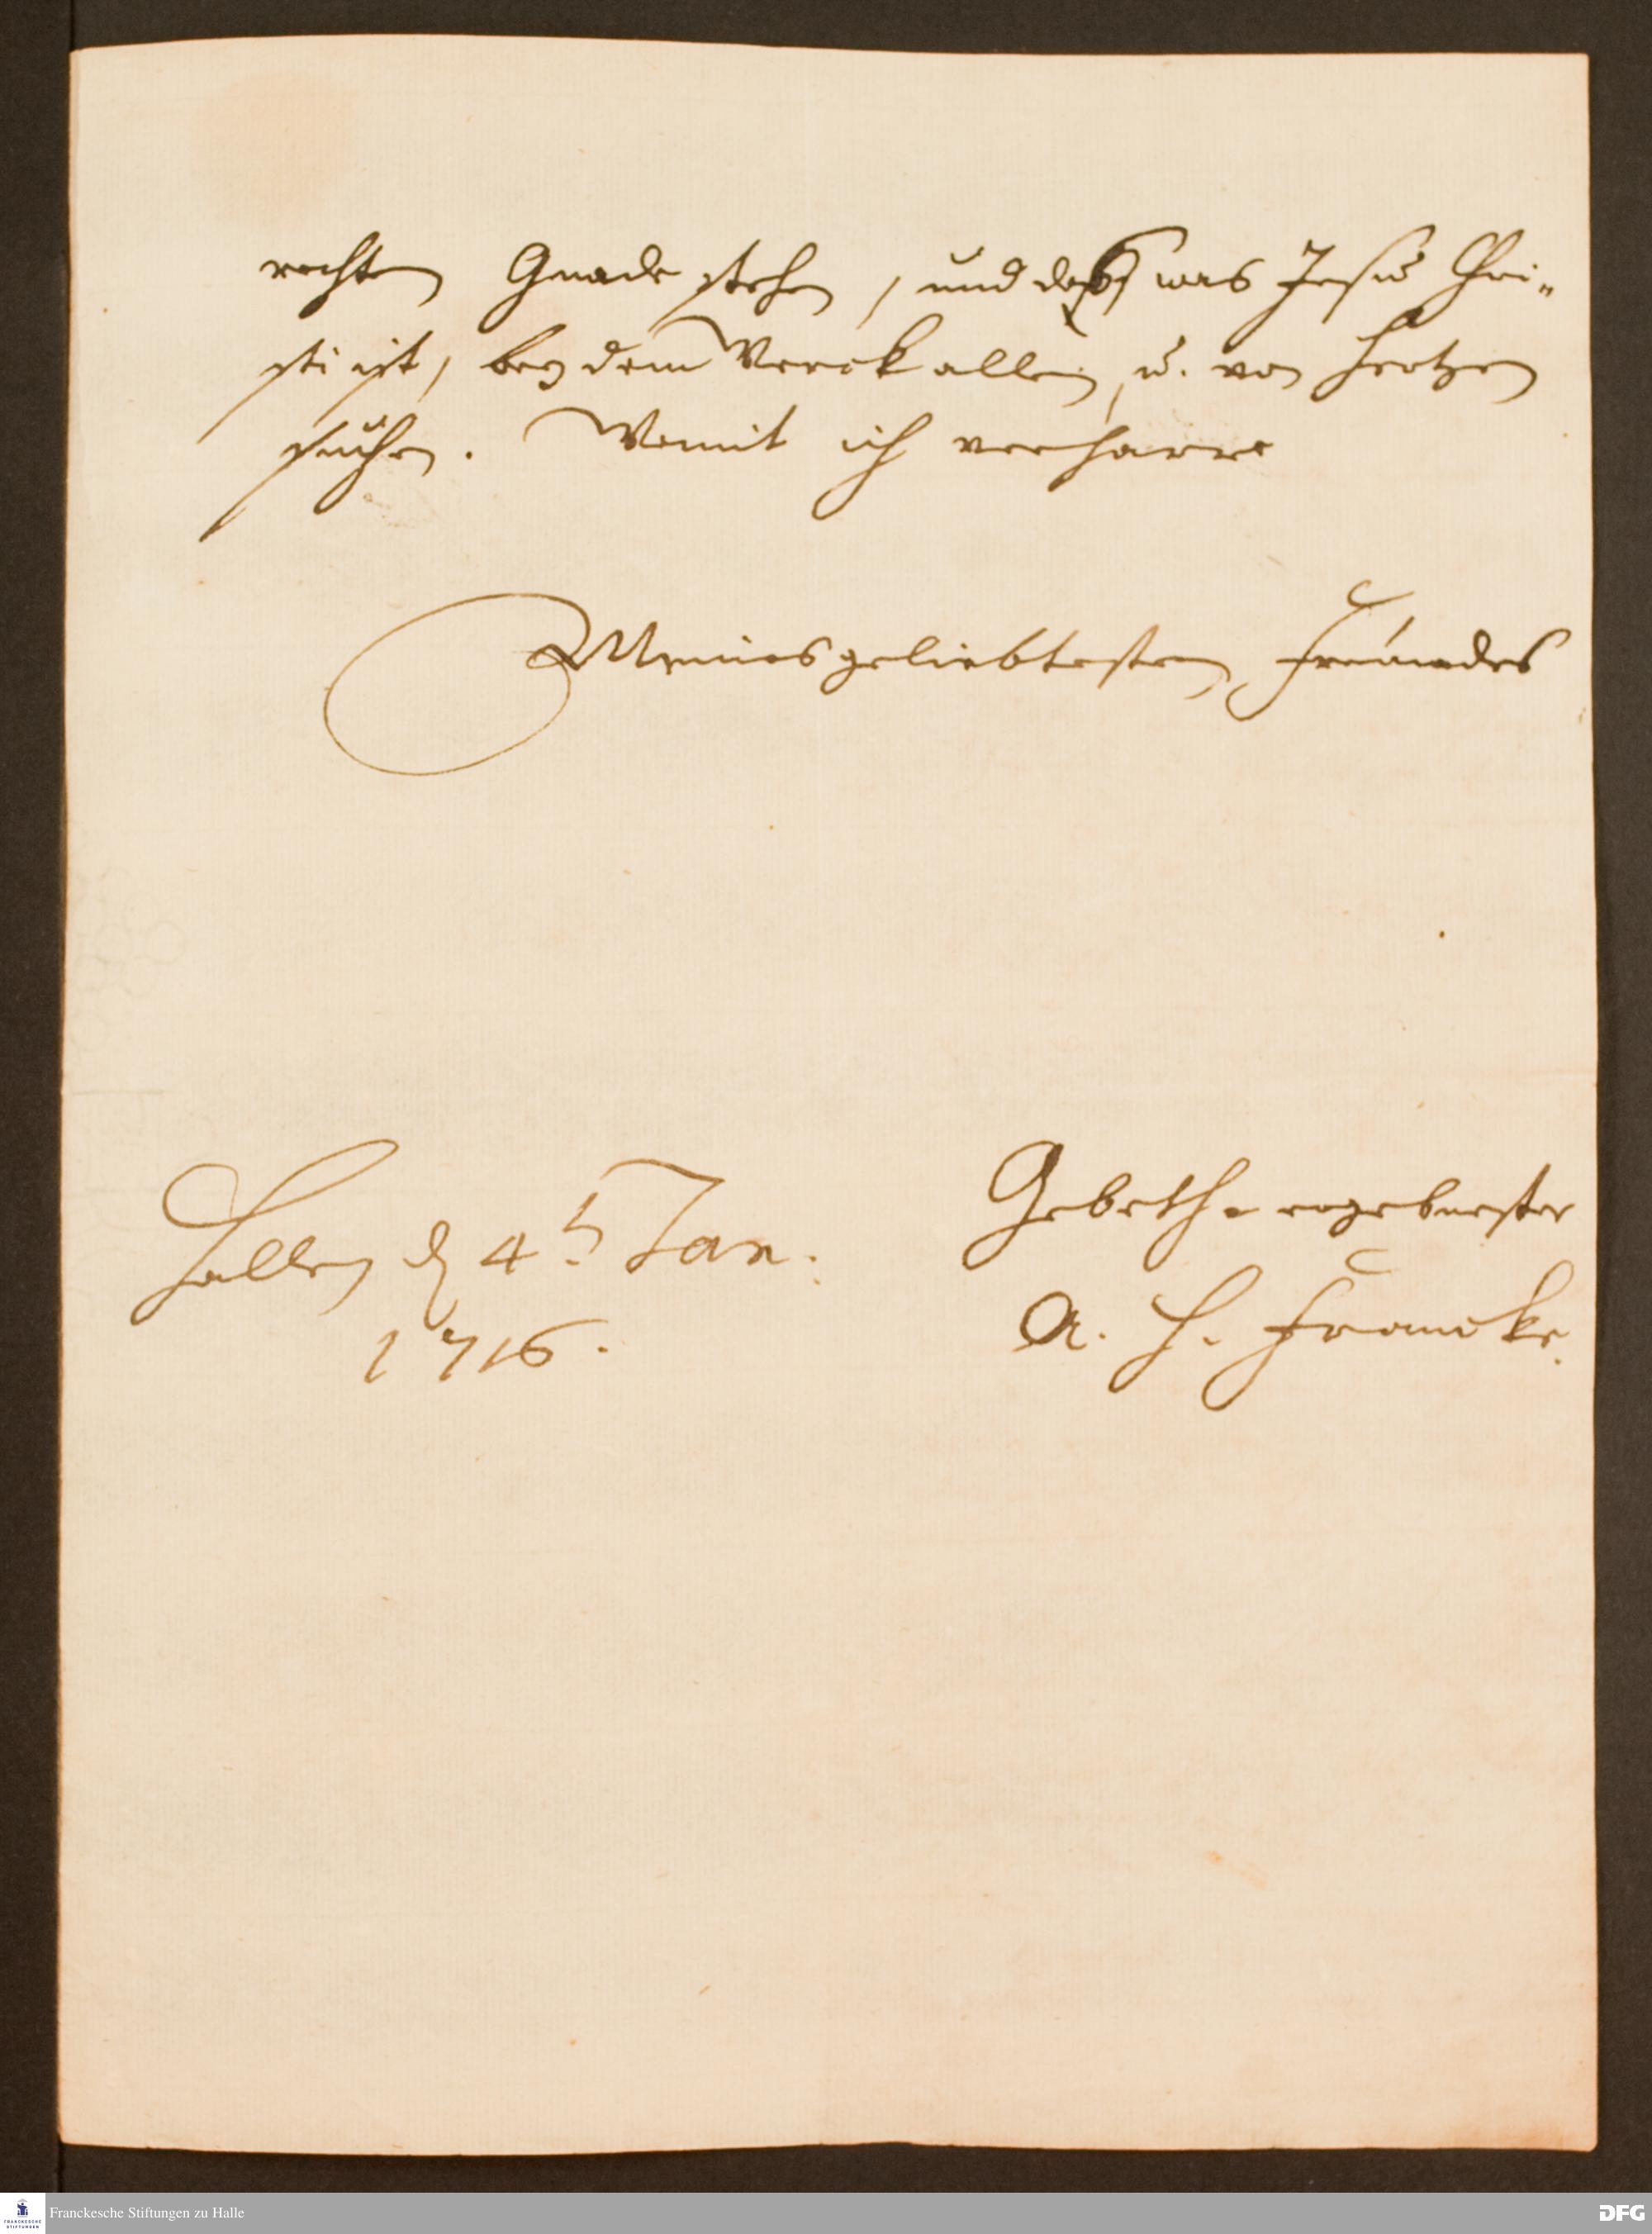 rechten Gnade stehen, und daß was Jesu Chri-
sti ist, bey dem Werck allein, u. von Hertzen
suchen. Womit ich verharre
Meines geliebtesten Freundes
Gebeth- ergebenster
Halle d 4 t. Jan.
A. H. Francke.
1716.
Franckesche Stiftungen zu Halle
DFG